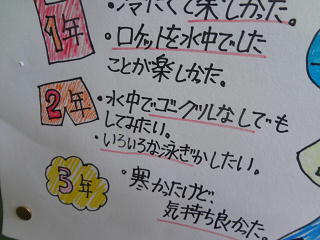 ・冷たくて楽しかった。
1年
・ロケットを水中でした
ことが楽しかった。
2年
・水中でゴーグルなしでも
してみたい。
・いろいろな泳ぎがしたい。
3年
・寒かったけど、
気持ち良かった。